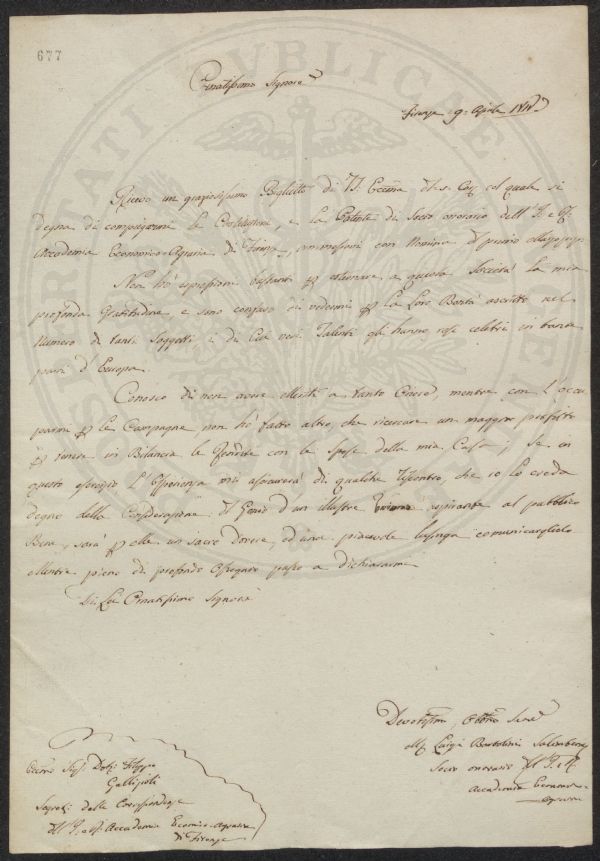 677
Ornatissimo Signore
Firenze 9. Aprile
Ricevo un graziosissimo Biglietto di V. Eccma col quale si
degna di compiegarmi le Costituzioni, e la Patente di Socio onorario dell' I. e R.
Accademia Economico-Agraria di Firenze, con Nomina
Non hò espressioni bastanti a questa Società la mia
profonda Gratitudine, e sono confuso di vedermi la Loro Bontà ascritto nel
Numero di tanti Soggetti, i di Cui veri Talenti gli hanno resi celebri in buona
parte d'Europa.
Conosco di non avere Meriti a tanto Onore, mentre con l'occu
parmi le Campagne, non hò fatto altro, che ricercare un maggior
tenere in Bilancia le Rendite con le Spese della mia Casa; Se in
questo esercizio l'Esperienza mi assicurerà di qualche riscontro, che io lo creda
degno della Considerazione del Genio d'un illustre aspirante al pubblico
Bene, sarà un sacro dovere, ed una piacevole lusinga comunicarglielo
Mentre pieno di profondo Ossequio passo a dichiararmi
Di Lei Ornatissimo Signore
Devotissimo Obbmo Serv
Luigi Bartolini Salimbeni
Socio onorario dell' I. e R.
Accademia Economico-
Agraria
Eccmo Sigr. Dottr. Filippo
Gallizioli
Segreto. delle Corrispondenze
dell' I. e R. Accademia Economico-Agraria
di Firenze